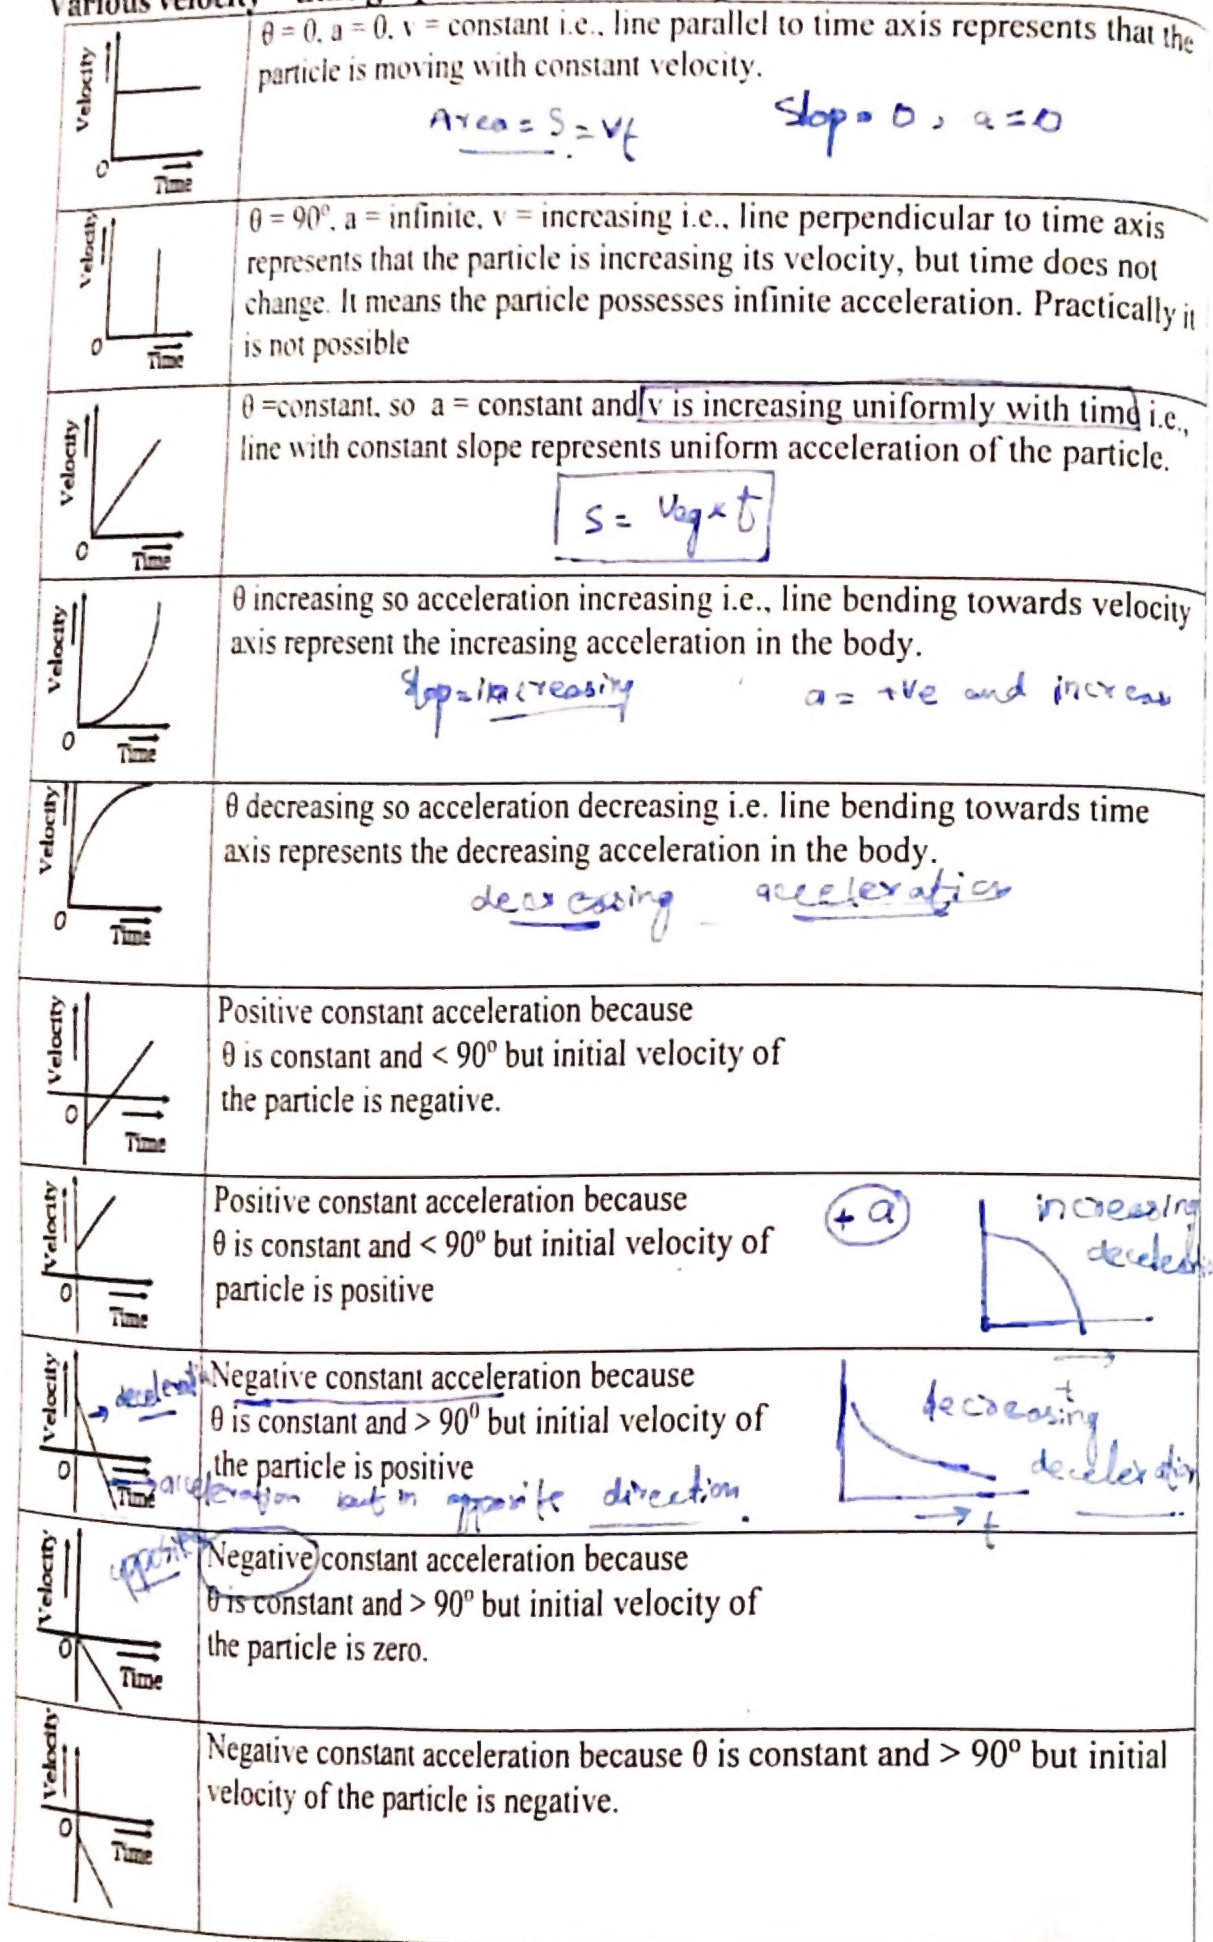 Various velocity
Velocity
0
Time
θ = 0, a = 0, v = constant i.e., line parallel to time axis represents that the
particle is moving with constant velocity.
Area = S = vt
Slop = 0, a = 0
Velocity
0
Time
θ = 90º, a = infinite, v = increasing i.e., line perpendicular to time axis
represents that the particle is increasing its velocity, but time does not
change. It means the particle possesses infinite acceleration. Practically it
is not possible
Velocity
0
Time
θ =constant, so a = constant and v is increasing uniformly with time i.e.,
line with constant slope represents uniform acceleration of the particle.
S = Vag × t
Velocity
0
Time
θ increasing so acceleration increasing i.e., line bending towards velocity
axis represent the increasing acceleration in the body.
Slop = increasing
a = +ve and increas
Velocity
0
Time
θ decreasing so acceleration decreasing i.e. line bending towards time
axis represents the decreasing acceleration in the body.
decreasing acceleration
Velocity
0
Time
Positive constant acceleration because
θ is constant and < 90º but initial velocity of
the particle is negative.
Velocity
0
Time
Positive constant acceleration because
θ is constant and < 90º but initial velocity of
particle is positive
+ a
increasing
Velocity
0
Time
Negative constant acceleration because
θ is constant and > 90º but initial velocity of
the particle is positive
acceleration but in opposite direction.
t
decreasing
deceleration
t
Velocity
0
Time
opposite
Negative constant acceleration because
θ is constant and > 90º but initial velocity of
the particle is zero.
Velocity
0
Time
Negative constant acceleration because θ is constant and > 90º but initial
velocity of the particle is negative.